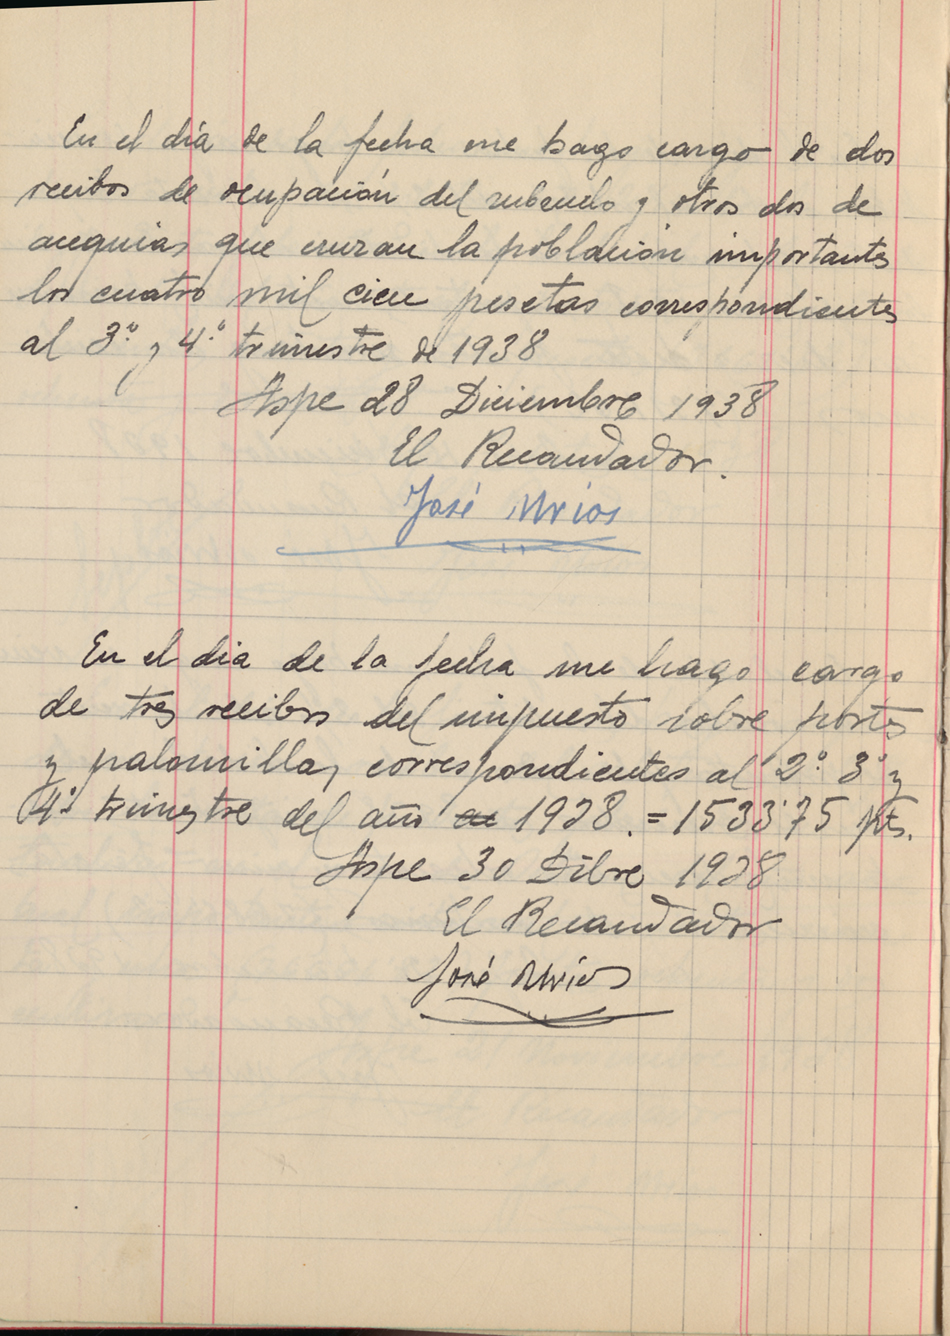 En el día de la fecha me hago cargo de dos
recibos de ocupación del subsuelo y otros dos de
acequias que cruzan la población importantes
los cuatro mil cien pesetas correspondientes
al 3º y 4º trimestre de 1938
Aspe 28 Diciembre 1938
El Recaudador.
José Urios
En el dia de la fecha me hago cargo
de tres recibos del impuesto sobre postes
y palomillas correspondientes al 2º 3º y
4º trimestre del año 1938. = 1533'75 pts.
Aspe 30 Dibre 1938
El Recaudador
José Urios